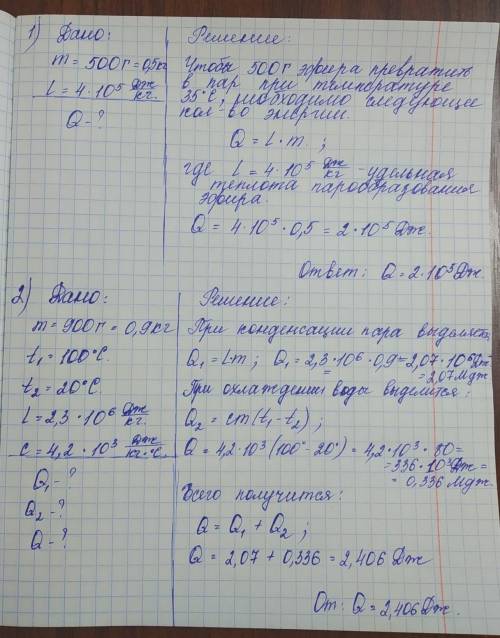 1) Дано:
m = 500г = 0,5кг
L = 4·10⁵ Дж/кг.
Q - ?
Решение:
Чтобы 500г эфира превратить
в пар при температуре
35°C, необходимо следующее
кол-во энергии.
Q = L·m ;
где L = 4·10⁵ Дж/кг - удельная
теплота парообразования
эфира.
Q = 4·10⁵·0,5 = 2·10⁵ Дж.
Ответ: Q = 2·10⁵ Дж.
2) Дано:
m = 900г = 0,9кг
t₁ = 100°C.
t₂ = 20°C.
L = 2,3·10⁶ Дж/кг
c = 4,2·10³ Дж/кг·°C.
Q₁ - ?
Q₂ - ?
Q - ?
Решение:
При конденсации пара выделяется
Q₁ = L·m ; Q₁ = 2,3·10⁶·0,9 = 2,07·10⁶ Дж
= 2,07 Мдж
При охлаждении воды выделится:
Q₂ = cm(t₁-t₂) ;
Q = 4,2·10³(100°-20°) = 4,2·10³·80=
=336·10³Дж=
= 0,336 Мдж.
Всего получится:
Q = Q₁ + Q₂ ;
Q = 2,07 + 0,336 = 2,406 Дж
От: Q = 2,406 Дж.